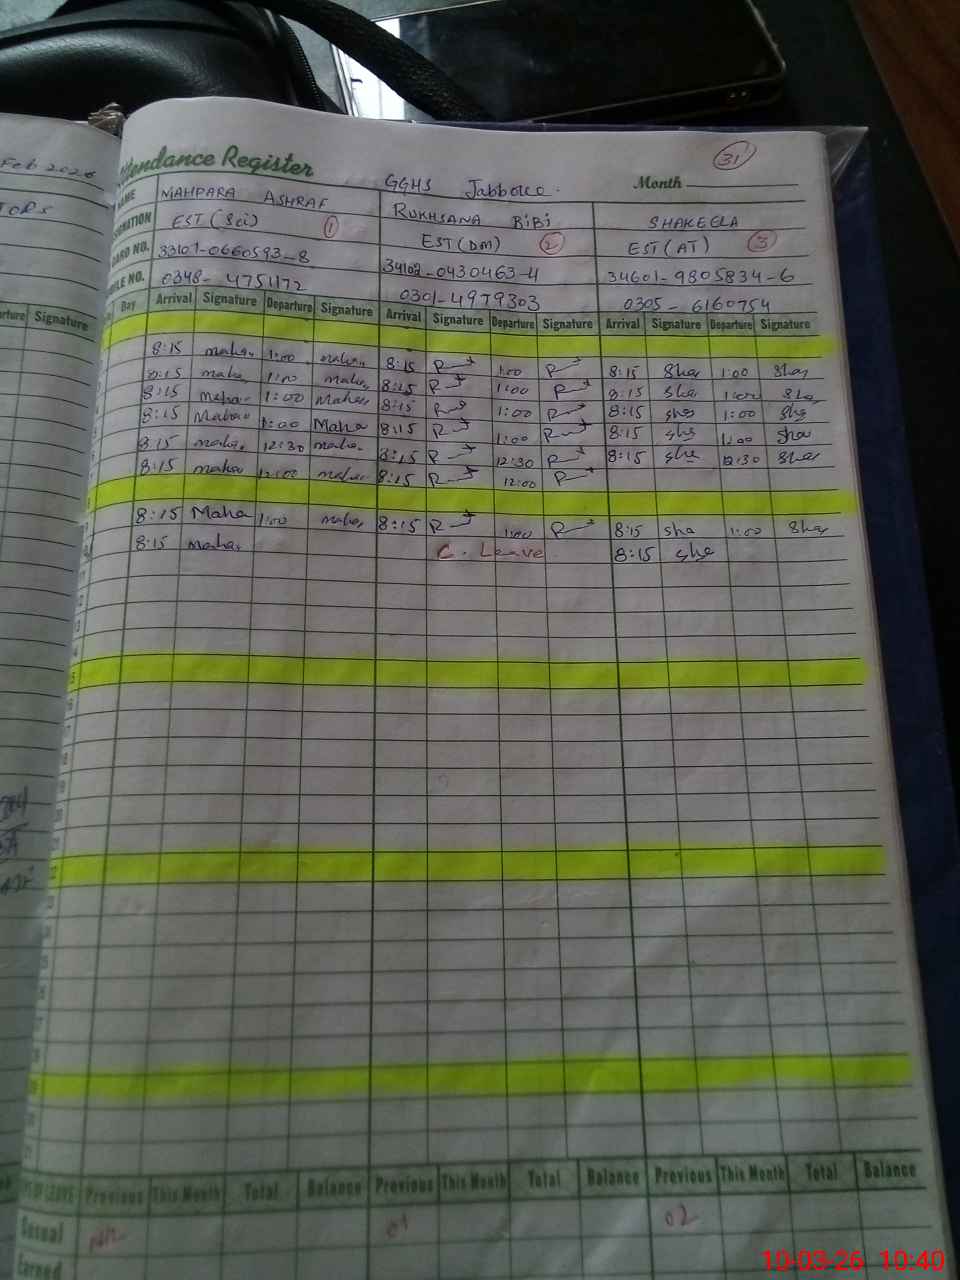 Feb 2026
Attendance Register
GGHS Jabboke.
31
Month
NAME
MAHPARA ASHRAF
RUKHSANA BiBi
SHAKEELA
EST (Sci) 1
EST (DM) 2
EST (AT) 3
CARD NO.
33101-0660593-8
34102-0430463-4
34601-9805834-6
0348-475472
0301-4979303
0305-6160754
Signature
Day Arrival Signature Departure Signature Arrival Signature Departure Signature Arrival Signature Departure Signature
8:15 maha. 1:00 maha. 8:15 R 1:00 R 8:15 Sha 1:00 Sha
8:15 maha. 1:00 maha. 8:15 R 1:00 R 8:15 sha 1:00 Sha
8:15 Maha 1:00 Maha 8:15 R 1:00 R 8:15 sha 1:00 Sha
8:15 Maha 1:00 Maha 8:15 R 1:00 R 8:15 sha 1:00 Sha
8:15 maha. 12:30 maha. 8:15 R 12:30 R 8:15 sha 12:30 Sha
8:15 maha 12:00 maha. 8:15 R 12:00 R
8:15 Maha 1:00 maha. 8:15 R 1:00 R 8:15 sha 1:00 Sha
8:15 maha. C. Leave. 8:15 sha
OF LEAVE Previous This Month Total Balance Previous This Month Total Balance Previous This Month Total Balance
Casual 01 02
Earned
10-03-26 10:40